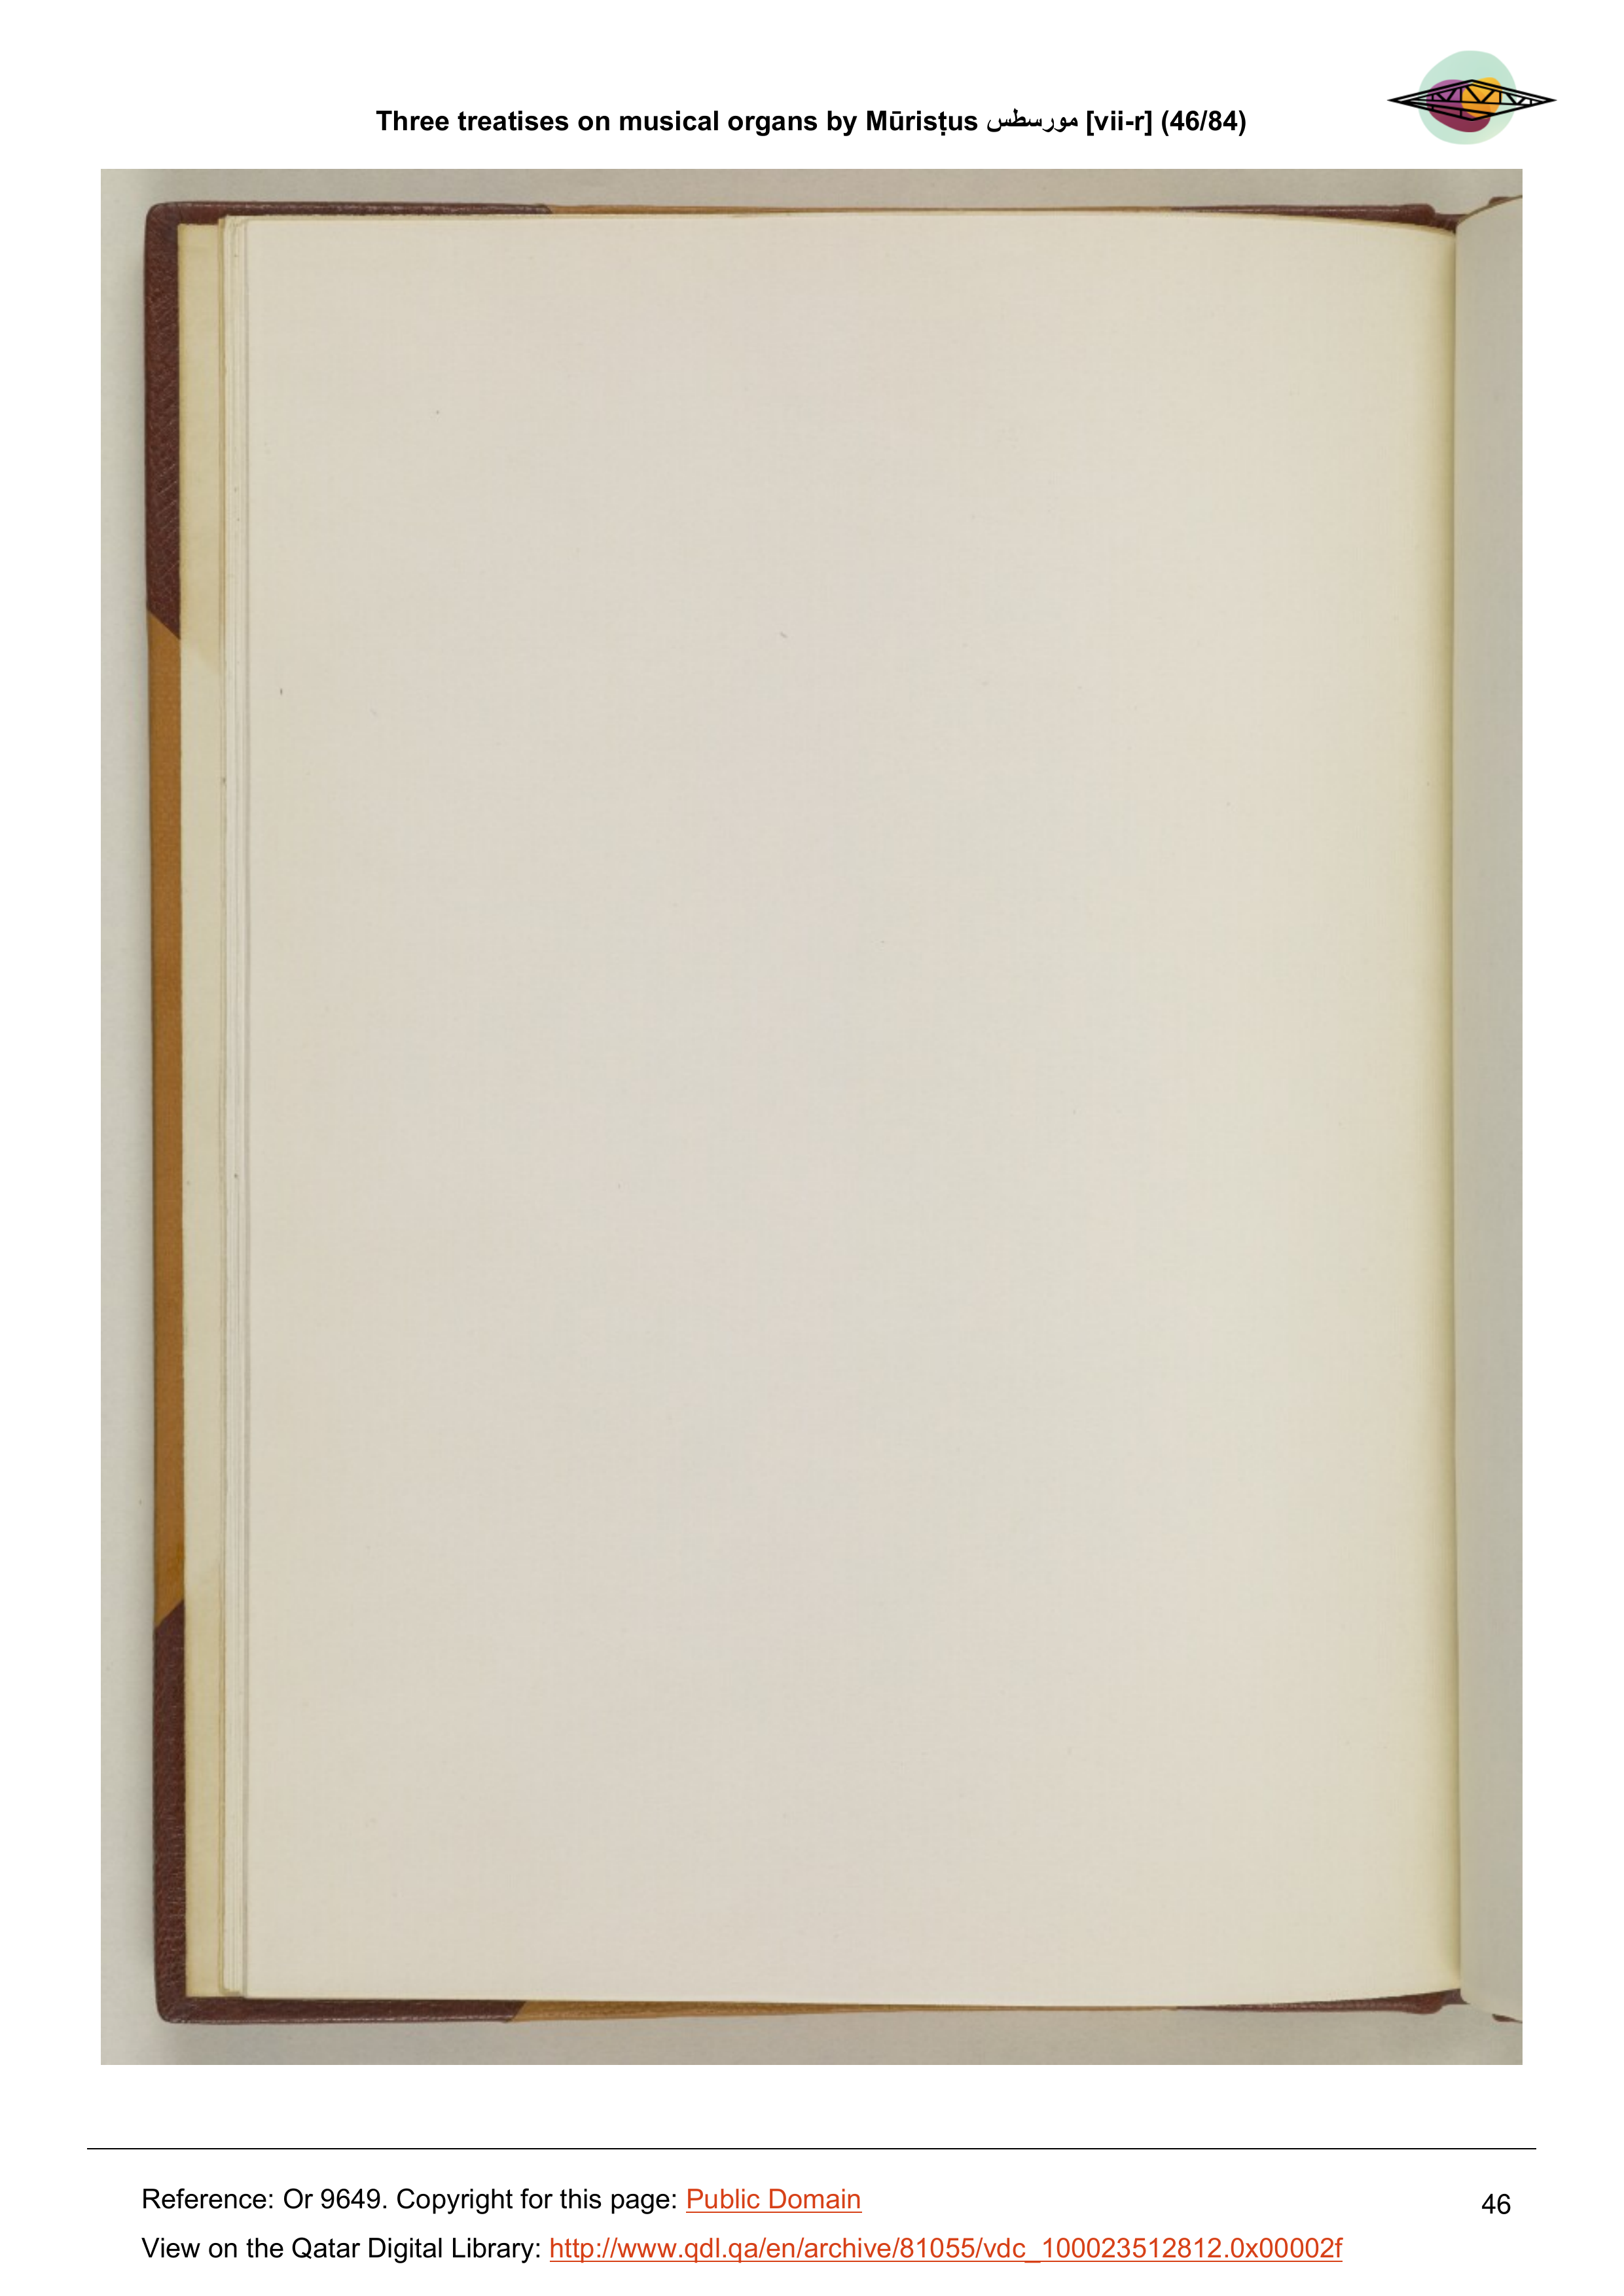 Three treatises on musical organs by Mūrisṭus مورسطس [vii-r] (46/84)
Reference: Or 9649. Copyright for this page: Public Domain
46
View on the Qatar Digital Library: http://www.qdl.qa/en/archive/81055/vdc_100023512812.0x00002f